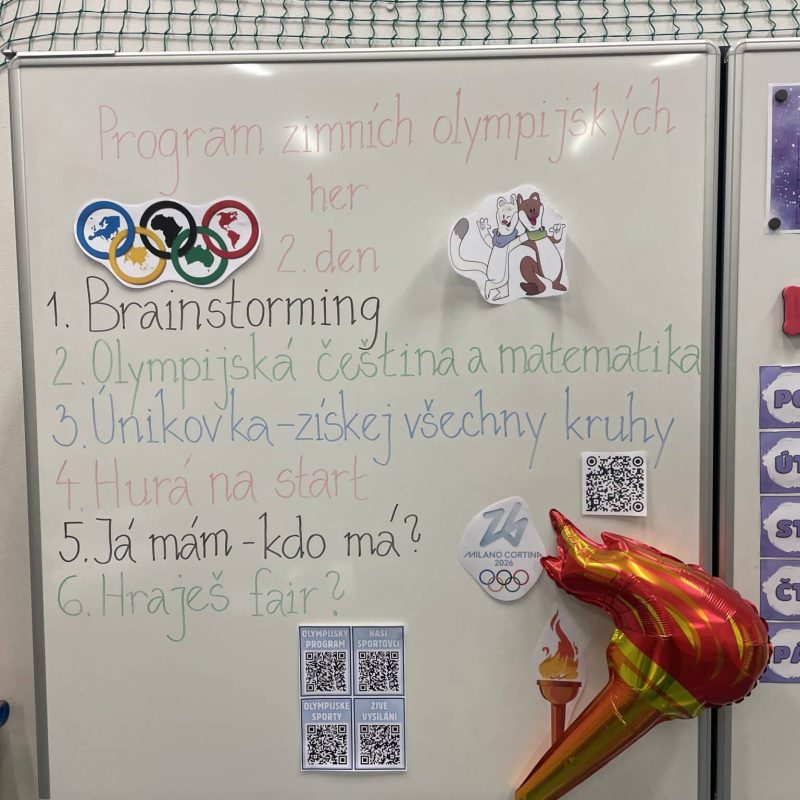 Program zimních olympijských
her
2. den
1. Brainstorming
2. Olympijská čeština a matematika
3. Únikovka - získej všechny kruhy
4. Hurá na start
5. Já mám - kdo má?
6. Hraješ fair?
MILANO CORTINA
2026
OLYMPIJSKÝ
PROGRAM
NAŠI
SPORTOVCI
OLYMPIJSKÉ
SPORTY
ŽIVÉ
VYSÍLÁNÍ